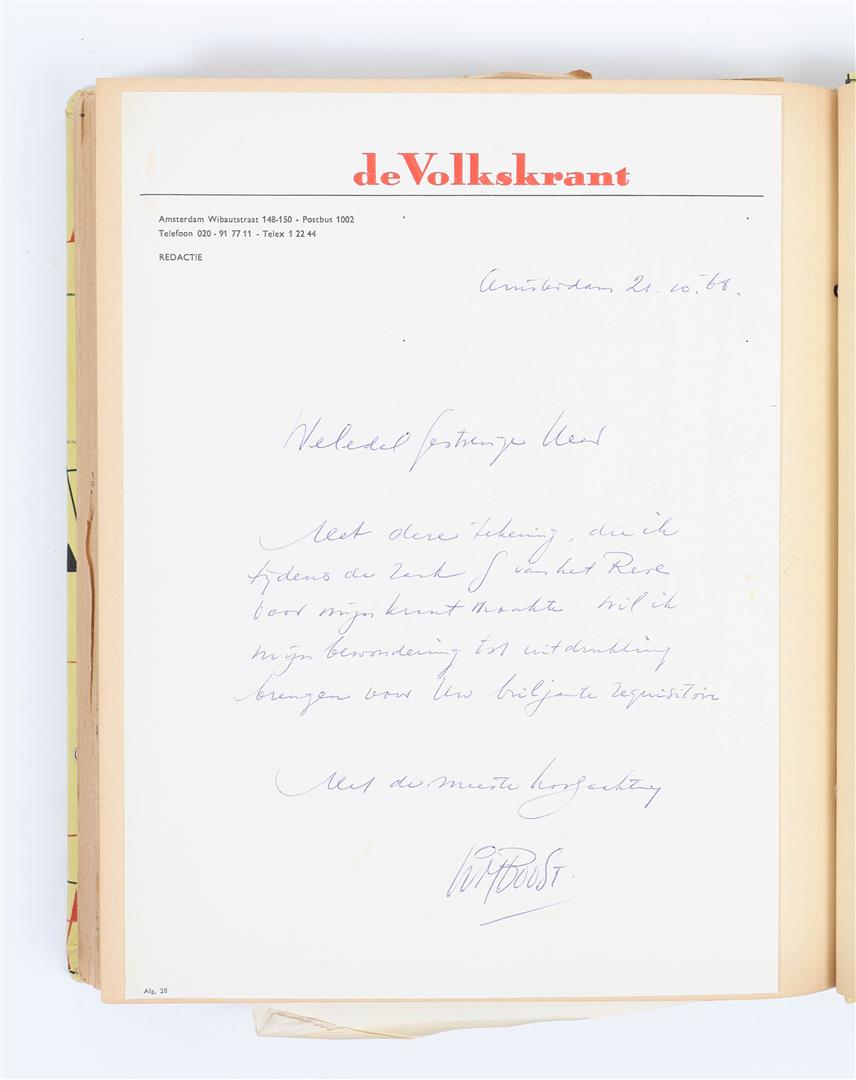 de Volkskrant
Amsterdam Wibautstraat 148-150 - Postbus 1002
Telefoon 020 - 91 77 11 - Telex 1 22 44
REDACTIE
Amsterdam 21.10.'68.
Weledel gestrenge Heer
Met deze tekening, die ik
tijdens de zaak G van het Reve
voor mijn krant maakte wil ik
mijn bewondering tot uitdrukking
brengen voor Uw briljante requisitoir
Met de meeste hoogachting
WIMBOOST.
Alg. 28